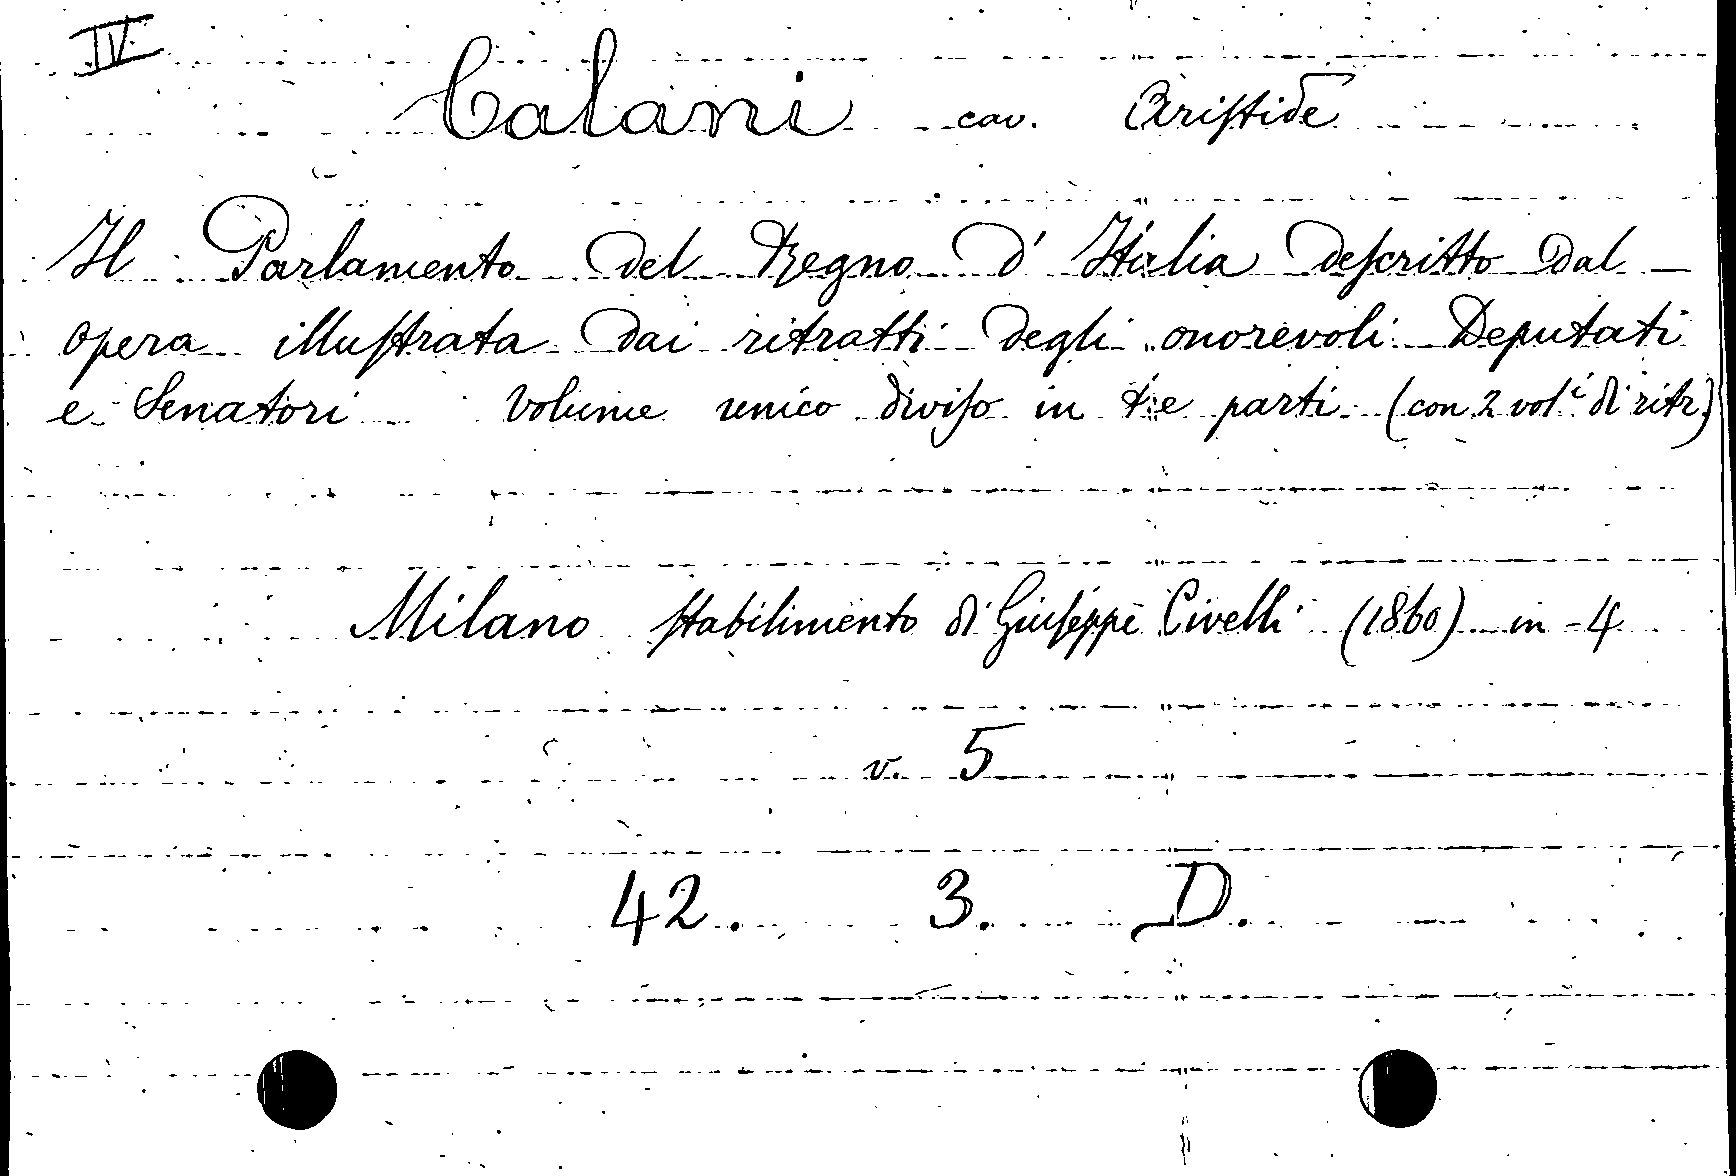 IV
Calani cav. Aristide
Il Parlamento del Regno d'Italia descritto dal —
opera illustrata dai ritratti degli onorevoli Deputati
e Senatori Volume unico diviso in tre parti (con 2 vol.i di ritr.)
Milano stabilimento di Giuseppe Civelli (1860) in-4
v. 5
42. 3. D.